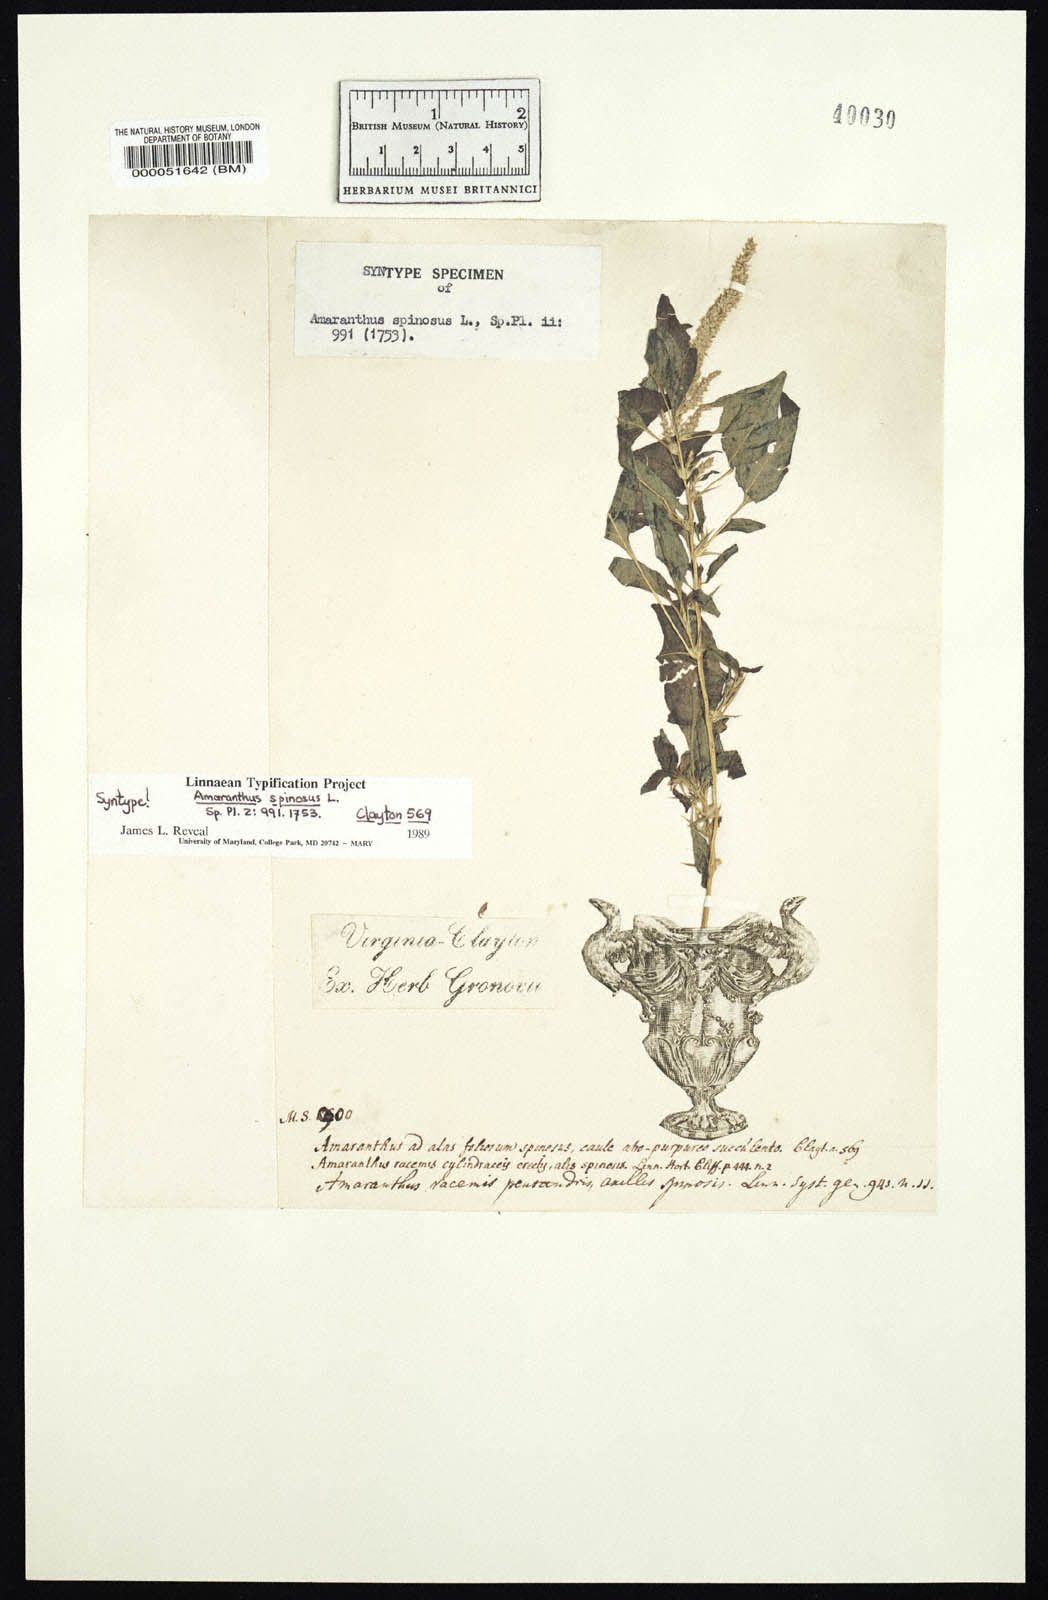 THE NATURAL HISTORY MUSEUM, LONDON
DEPARTMENT OF BOTANY
000051642 (BM)
1 2
BRITISH MUSEUM (NATURAL HISTORY)
1 2 3 4 5
HERBARIUM MUSEI BRITANNICI
40030
SYNTYPE SPECIMEN
of
Amaranthus spinosus L., Sp.Pl. ii:
991 (1753).
Linnaean Typification Project
Syntype! Amaranthus spinosus L.
Sp. Pl. 2: 991. 1753. Clayton 569
James L. Reveal 1989
University of Maryland, College Park, MD 20742 – MARY
Virginia-Clayton
Ex. Herb Gronovii
M. S.
Amaranthus ad alas foliorum spinosus, caule atro-purpureo succulento. Clayt. n. 569
Amaranthus racemis cylindraceis erectis, alis spinosis. Linn. Hort. Cliff. p. 444. n. 2
Amaranthus racemis pentandris, axillis spinosis. Linn. Syst. gen. 943. n. 11.